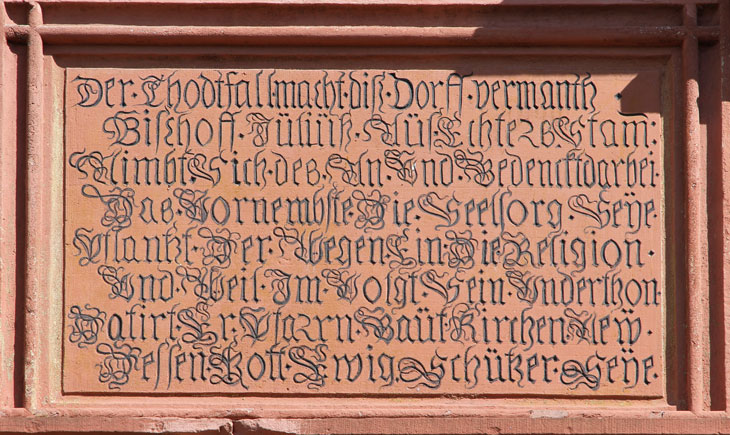 Der·Thodtfall·macht·diß·Dorff·vermanth
Bischoff·Jüliüß·Aüß·Echters·Stam:
Nimbt·Sich·des·An·Vnd·Bedenckt·darbei
Das·Vornembste·Die·Seelsorg·Seÿe·
Pflantzt·Der·Wegen·Ein·Die·Religion·
Vnd·Weil·Im·Volgt·Sein·Vnderthon
Datirt·Er·Pfarrn·Baüt·Kirchen·New·
Dessen·Gott·Ewig·Schützer·Seÿe·